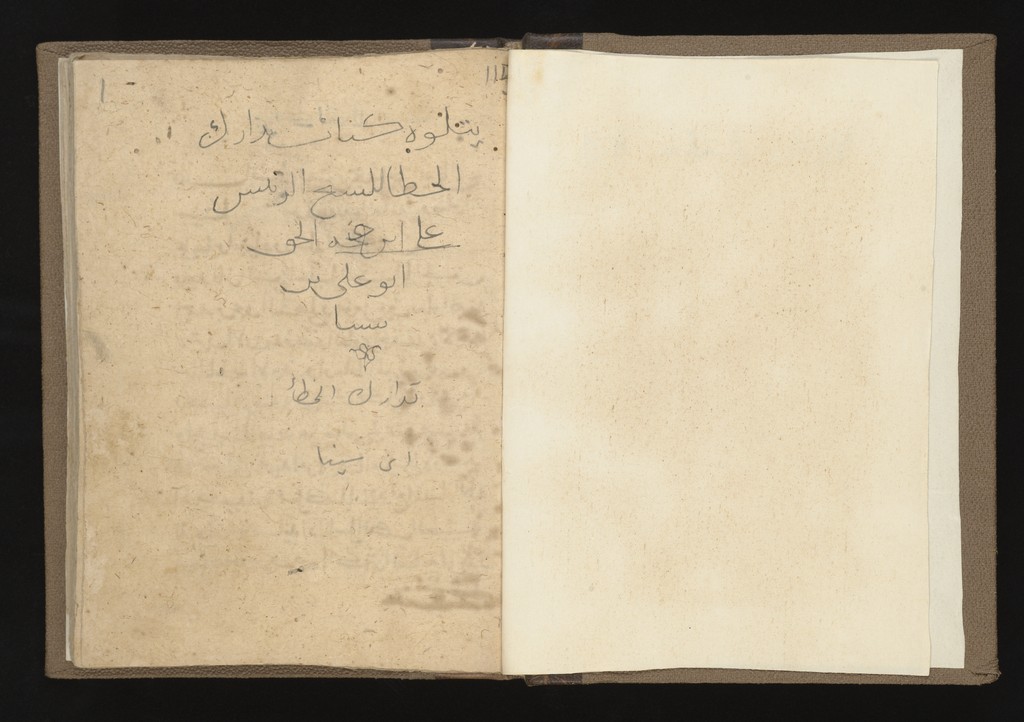 يتلوه كتاب تدارك
الخطا للشيخ الرئيس
على ابن حجه الحق
ابو على بن
سينا
تدارك الخطأ
ابن سينا